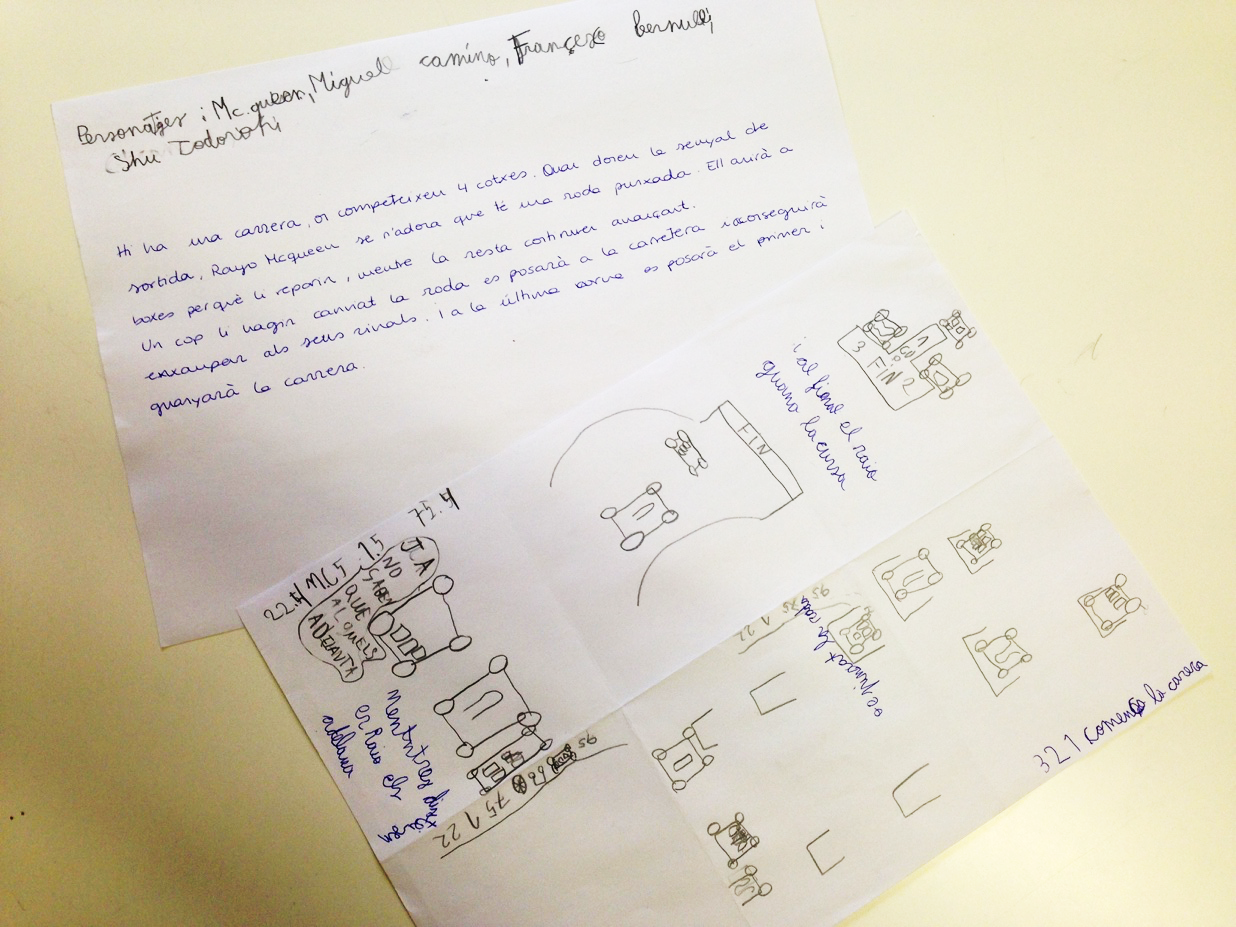 Personatges i Mc.queen, Miguel camino, Françesc bernulli
Shu Todoroki
Hi ha una carrera, on competeixen 4 cotxes. Quan donen la senyal de
sortida, Rayo Mcqueen se n'adona que té una roda punxada. Ell anirà a
boxes perquè li reparin, mentre la resta continuen avançant.
Un cop li hagin canviat la roda es posarà a la carretera i aconseguirà
enxampar als seus rivals. i a la última curva es posarà el primer i
guanyarà la carrera.
3 GO 1
FIN 2
i al final el raio
guana la cursa
FIN
75.4
1.5
M.C5
22.4
JCA
NO
SABEN
QUE
ALOMELS
ADELANTA
Mentntres
er Raio els
adelana
95
75 1 22
95
75 1
22
se punxat la roda
321 comença la carera